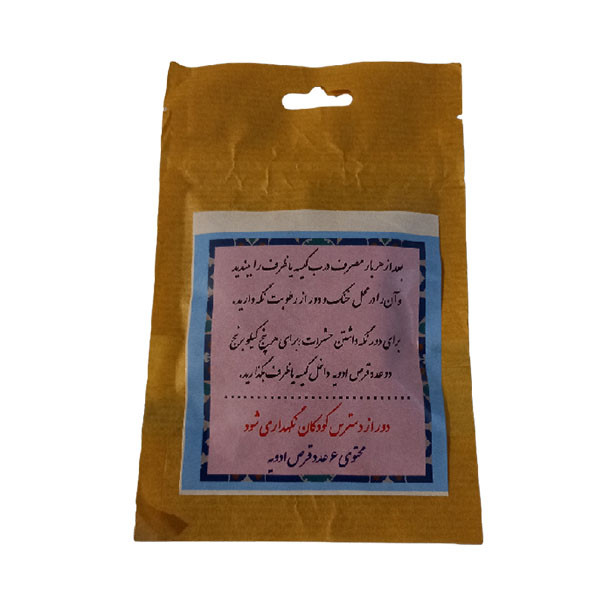 بعد از هر بار مصرف درب کیسه یا ظرف را ببندید
و آن را در محل خنک و دور از رطوبت نگه دارید.
برای دور نگه داشتن حشرات: برای هر پنج کیلو برنج
دو عدد قرص ادویه داخل کیسه یا ظرف بگذارید.
دور از دسترس کودکان نگهداری شود
محتوی ۶ عدد قرص ادویه